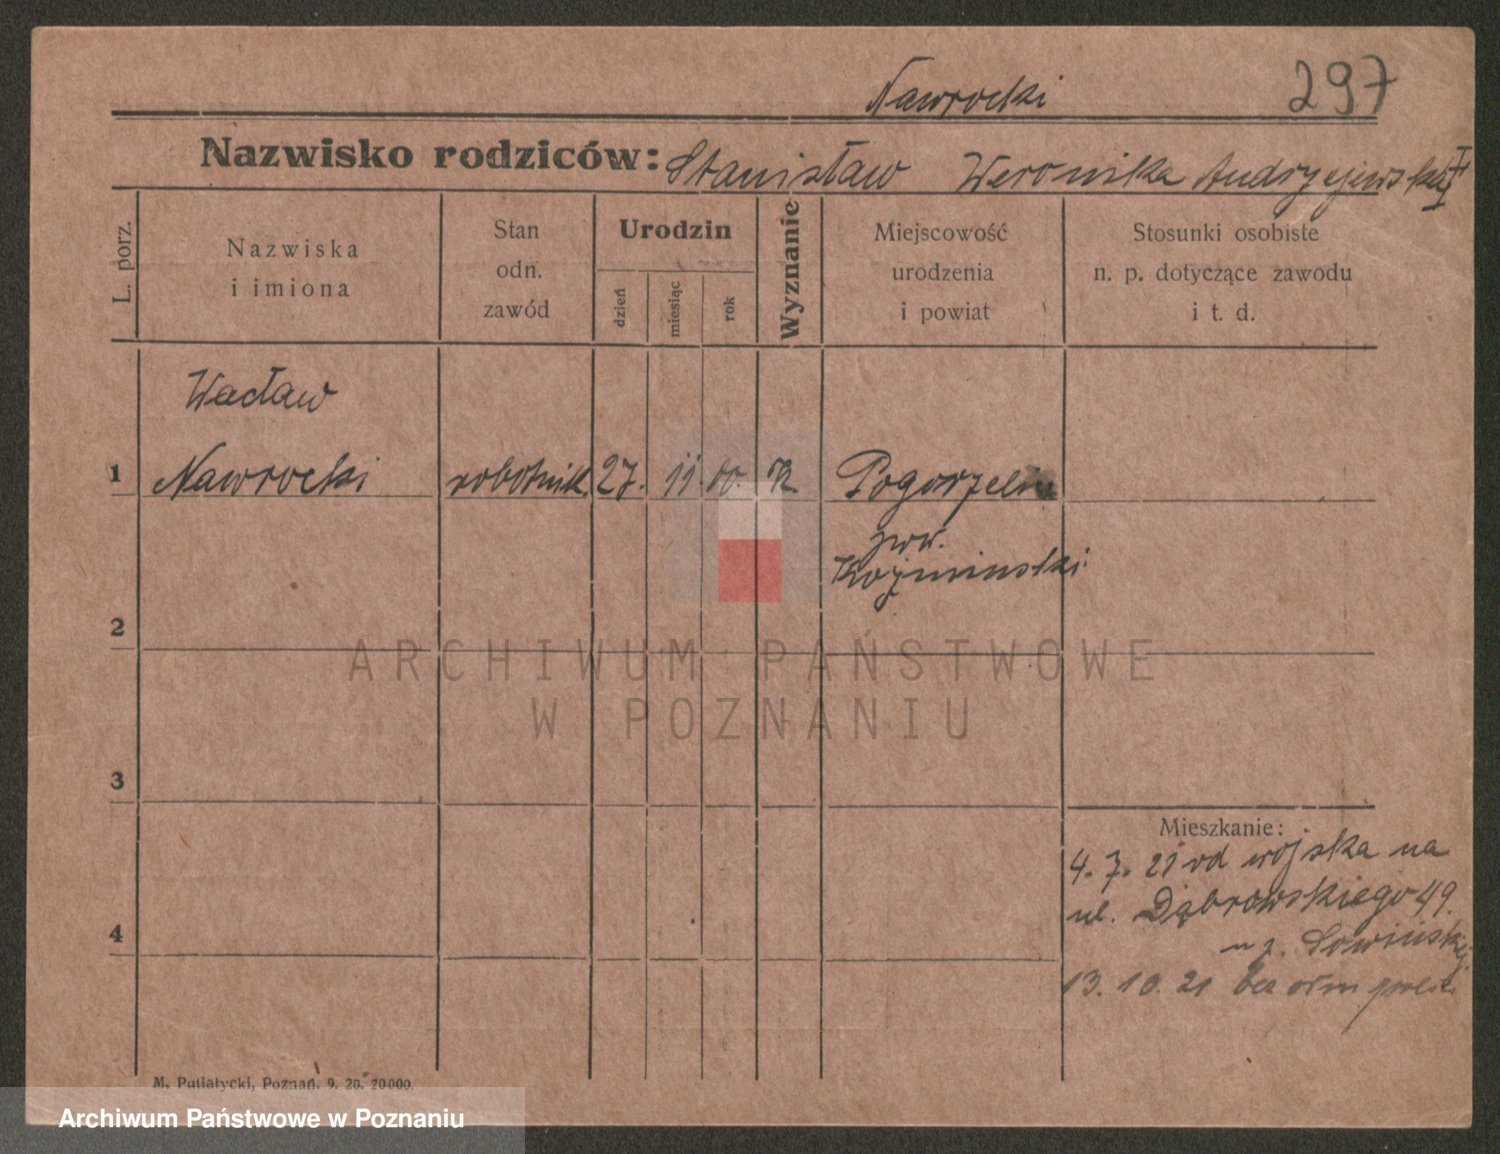 Nawrocki 297
Nazwisko rodziców: Stanisław Weronika Andrzejewska
L. porz.
Nazwiska
i imiona
Stan
odn.
zawód
Urodzin
dzień
miesiąc
rok
Wyznanie
Miejscowość
urodzenia
i powiat
Stosunki osobiste
n. p. dotyczące zawodu
i t. d.
Wacław
1 Nawrocki robotnik. 27. 11. 00. K Pogorzela
pow.
Koźmiński
2
ARCHIWUM PAŃSTWOWE
W POZNANIU
3
Mieszkanie:
4. 7. 21 od wojska na
ul. Dąbrowskiego 49.
4
Sowiński
13. 10. 21 bez
M. Putiatycki, Poznań. 9. 20. 20000.
Archiwum Państwowe w Poznaniu